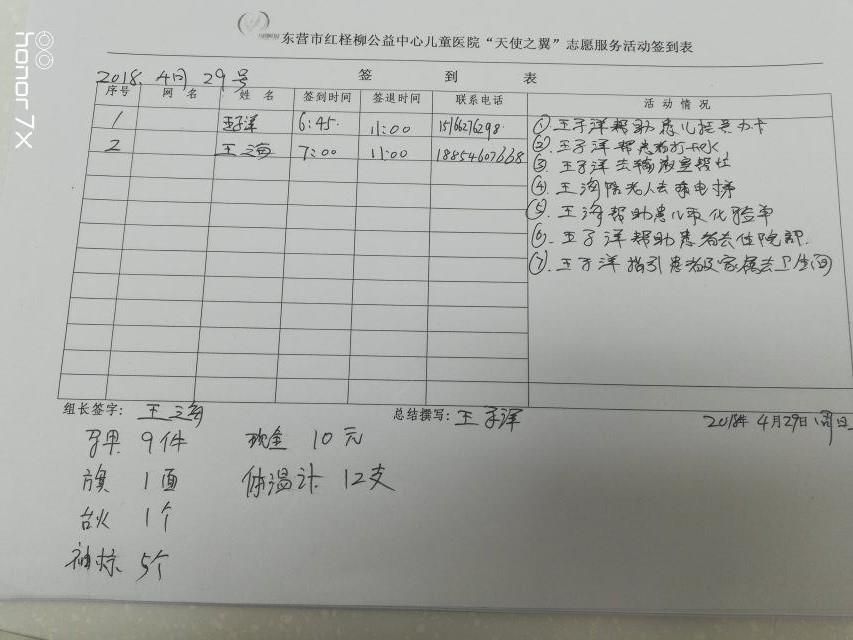 东营市红柽柳公益中心儿童医院“天使之翼”志愿服务活动签到表
2018.4月29号 签到表
序号 网名 姓名 签到时间 签退时间 联系电话 活动情况
1 王子洋 6:45. 11:00 15166276298.
2 王海 7:00 11:00 18854607668
①王子洋帮助患儿挂号办卡
②.王子洋帮患者打开水
③.王子洋去输液室帮忙
④.王海陪老人去乘电梯
⑤.王海帮助患儿取化验单
⑥.王子洋帮助患者去住院部.
⑦.王子洋指引患者及家属去卫生间
组长签字：王海 总结撰写：王子洋 2018年4月29日周日
马甲 9件 现金 10元
旗 1面 体温计 12支
台 1个
袖标 5个
honor 7X